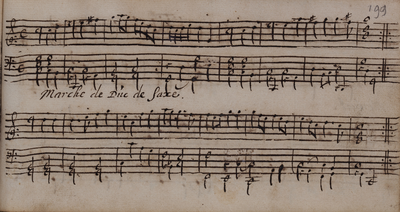 199
Marche de Duc de Saxe.